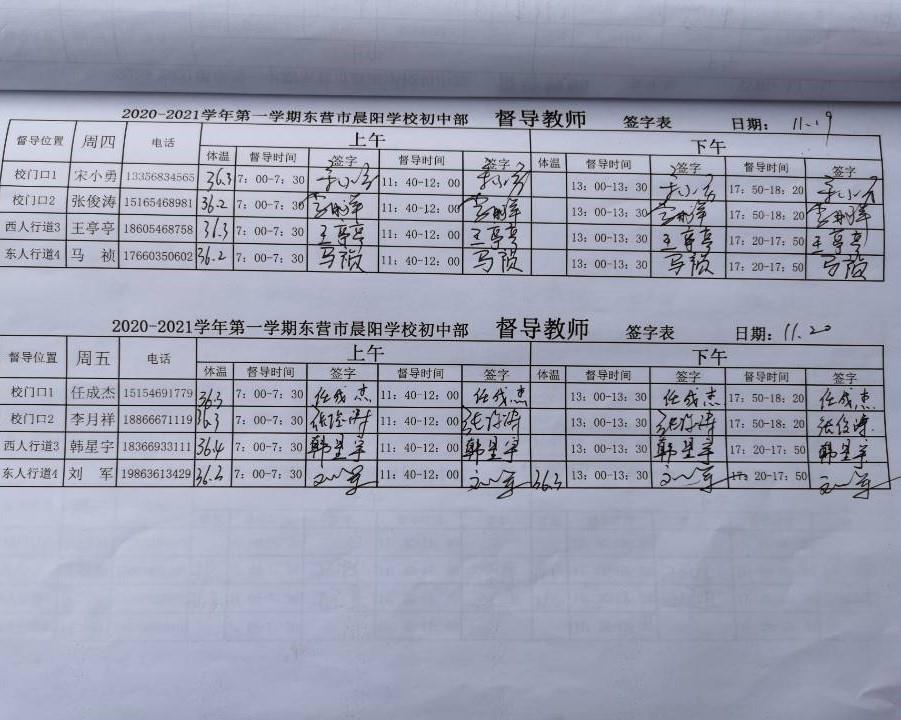 2020-2021学年第一学期东营市晨阳学校初中部 督导教师 签字表 日期: 11.19
督导位置 周四 电话 上午 下午
体温 督导时间 签字 督导时间 签字 体温 督导时间 签字 督导时间 签字
校门口1 宋小勇 13356834565 36.3 7:00-7:30 宋小勇 11:40-12:00 宋小勇 13:00-13:30 宋小勇 17:50-18:20 宋小勇
校门口2 张俊涛 15165468981 36.2 7:00-7:30 11:40-12:00 13:00-13:30 17:50-18:20
西人行道3 王亭亭 18605468758 36.3 7:00-7:30 王亭亭 11:40-12:00 王亭亭 13:00-13:30 王亭亭 17:20-17:50 王亭亭
东人行道4 马 祯 17660350602 36.2 7:00-7:30 马祯 11:40-12:00 马祯 13:00-13:30 马祯 17:20-17:50 马祯
2020-2021学年第一学期东营市晨阳学校初中部 督导教师 签字表 日期: 11.20
督导位置 周五 电话 上午 下午
体温 督导时间 签字 督导时间 签字 体温 督导时间 签字 督导时间 签字
校门口1 任成杰 15154691779 36.3 7:00-7:30 任成杰 11:40-12:00 任成杰 13:00-13:30 任成杰 17:50-18:20 任成杰
校门口2 李月祥 18866671119 36.3 7:00-7:30 张俊涛 11:40-12:00 张俊涛 13:00-13:30 张俊涛 17:50-18:20 张俊涛
西人行道3 韩星宇 18366933111 36.4 7:00-7:30 韩星宇 11:40-12:00 韩星宇 13:00-13:30 韩星宇 17:20-17:50 韩星宇
东人行道4 刘 军 19863613429 36.3 7:00-7:30 刘军 11:40-12:00 刘军 36.3 13:00-13:30 刘军 17:20-17:50 刘军